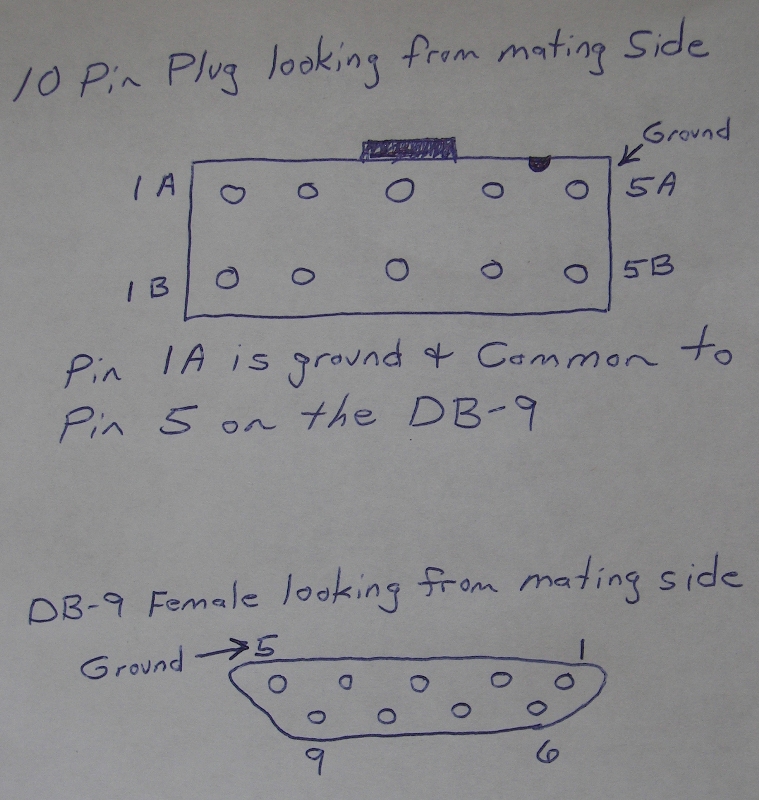 10 Pin Plug looking from mating Side
Ground
1A 5A
1B 5B
Pin 1A is ground & Common to
Pin 5 on the DB-9
DB-9 Female looking from mating side
Ground 5 1
9 6